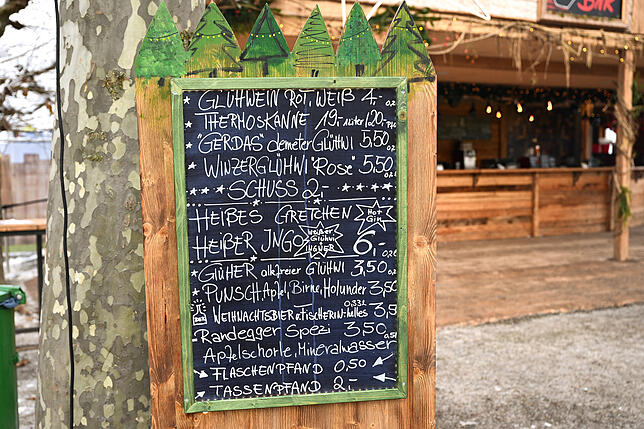 BAR
GLÜHWEIN ROT, WEIß 4,- 0,2
THERMOSKANNE 19,- 1 Liter/20,- Pf.
"GERDAS" demeter GLÜHWI 5,50 0,2
WINZERGLÜHWI "Rosé" 5,50 0,2
SCHUSS 2,-
HEIßES GRETCHEN Hot Gin
HEIßER INGO weißer Glühwi INGWER 6,-
GLÜHER alk.freier GLÜHWI 3,50 0,2
PUNSCH, Apfel, Birne, Holunder 3,50
WEIHNACHTSBIER 0,33l 3,5
Randegger Spezi 3,50 0,5l
Apfelschorle, Mineralwasser
FLASCHENPFAND 0,50
TASSENPFAND 2,-